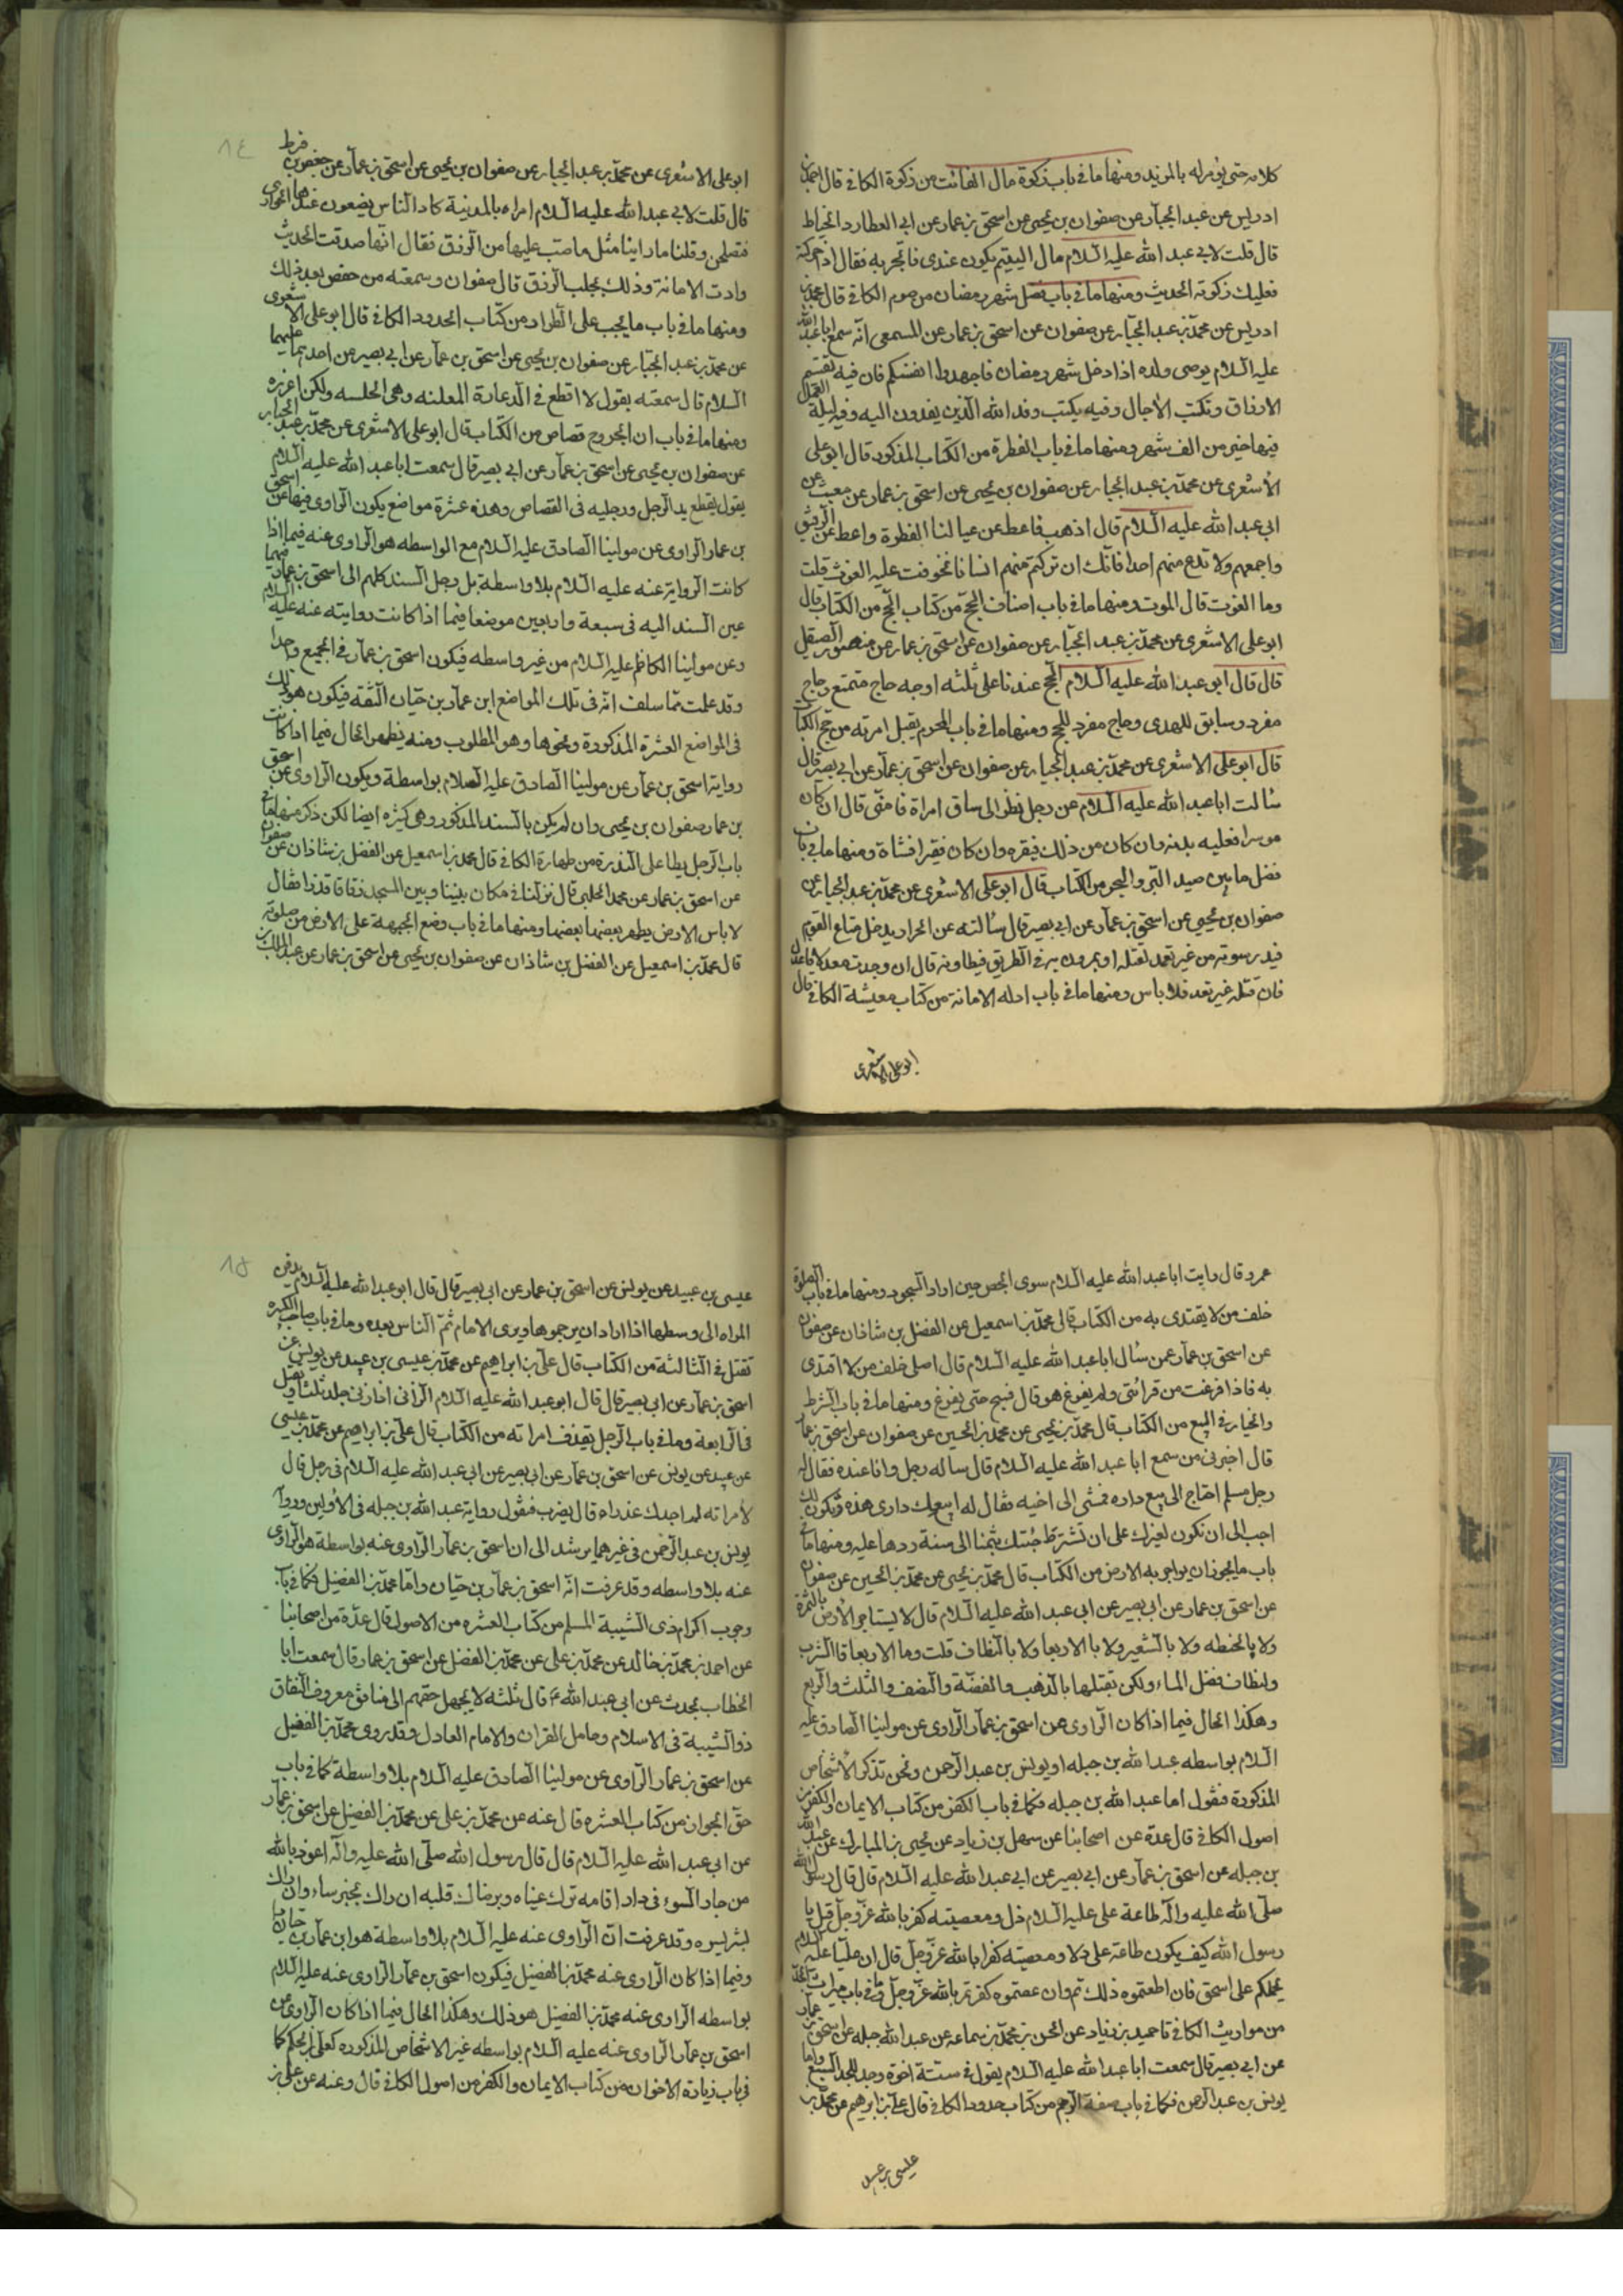 كلامه حتى يؤمر له بالمزيد ومنها ما في باب زكوة مال الغائب من زكوة الكافي قال احمد بن
ادريس عن عبد الجبار عن صفوان بن يحيى عن اسحق بن عمار عن ابي العطارد الخياط
قال قلت لابي عبد الله عليه السلام مال اليتيم يكون عندى فاتجر به فقال اذا حركته
فعليك زكوته الحديث ومنها ما في باب فضل شهر رمضان من صوم الكافي قال احمد بن
ادريس عن محمد بن عبد الجبار عن صفوان عن اسحق بن عمار عن المسمعى انه سمع ابا عبد الله
عليه السلام يوصى ولده اذا دخل شهر رمضان فاجهدوا انفسكم فان فيه تقسم
الارزاق وتكتب الآجال وفيه يكتب وفد الله الذين يفدون اليه وفيه ليلة العمل
فيها خير من الف شهر ومنها ما في باب الفطرة من الكتاب المذكور قال ابو على
الأشعرى عن محمد بن عبد الجبار عن صفوان بن يحيى عن اسحق بن عمار عن معتب عن
ابى عبد الله عليه السلام قال اذهب فاعط عن عيالنا الفطرة واعط عن الرقيق
واجمعهم ولا تدع منهم احدا فانك ان تركتم منهم انسانا تخوفت عليه الفوت قلت
وما الفوت قال الموت ومنها ما في باب اصناف الحج من كتاب الحج من الكتاب قال
ابو على الاشعرى عن محمد بن عبد الجبار عن صفوان عن اسحق بن عمار عن منصور الصيقل
قال قال ابو عبد الله عليه السلام الحج عندنا على ثلثه اوجه حاج متمتع وحاج
مفرد وسابق للهدى وحاج مفرد للحج ومنها ما في باب المحرم يقبل امرته من حج الكتاب
قال ابو على الاشعرى عن محمد بن عبد الجبار عن صفوان عن اسحق بن عمار عن ابي بصير قال
سألت ابا عبد الله عليه السلام عن رجل نظر الى ساق امراة فامنى قال ان كان
موسرا فعليه بدنه وان كان من ذلك فبقره وان كان فقيرا فشاة ومنها ما في باب
فصل ما بين صيد البر والبحر من الكتاب قال ابو على الاشعرى عن محمد بن عبد الجبار عن
صفوان بن يحيى عن اسحق بن عمار عن ابي بصير قال سألته عن الجراد يدخل متاع القوم
فيدرسونه من غير تعمد لقتله او يمرون به في الطريق فيطاونه قال ان وجدت معدلا فاعدل
فان قتلته غير تعمد فلا باس ومنها ما في باب اداء الامانة من كتاب معيشة الكافي قال
ابو على الاشعرى
١٤
ابو على الاشعرى عن محمد بن عبد الجبار عن صفوان بن يحيى عن اسحق بن عمار عن حفص بن قرط
قال قلت لابي عبد الله عليه السلام امراه بالمدينة كان الناس يضعون عندها الجوارى
فتصلحن وقلنا ما راينا مثل ما صب عليها من الرزق فقال انها صدقت الحديث
وادت الامانة وذلك يجلب الرزق قال صفوان وسمعته من حفص بعد ذلك
ومنها ما في باب ما يجب على الطرار من كتاب الحدود الكافي قال ابو على الاشعرى
عن محمد بن عبد الجبار عن صفوان بن يحيى عن اسحق بن عمار عن ابي بصير عن احدهما عليهما
السلام قال سمعته يقول لا اقطع في الدعارة المعلنه وهى الخلسه ولكن اعزره
ومنها ما في باب ان الجروح قصاص من الكتاب قال ابو على الاشعرى عن محمد بن عبد الجبار
عن صفوان بن يحيى عن اسحق بن عمار عن ابي بصير قال سمعت ابا عبد الله عليه السلام
يقول يقطع يد الرجل ورجليه في القصاص وهذه عشرة مواضع يكون الراوى فيها عن اسحق
بن عمار الراوى عن مولينا الصادق عليه السلام مع الواسطه هو الراوى عنه فيما اذا
كانت الرواية عنه عليه السلام بلا واسطة بل رجل السند كلهم الى اسحق بن عمار فيهما
عين السند اليه في سبعة واربعين موضعا فيما اذا كانت روايته عنه عليه السلام
وعن مولينا الكاظم عليه السلام من غير واسطه فيكون اسحق بن عمار في الجميع واحدا
وقد علمت مما سلف انه في تلك المواضع ابن عمار بن حيان الثقه فيكون هو ذلك
في المواضع العشرة المذكورة ونحوها وهو المطلوب ومنه يظهر الحال فيما اذا كانت
رواية اسحق بن عمار عن مولينا الصادق عليه السلام بواسطة ويكون الراوى عن اسحق
بن عمار صفوان بن يحيى وان لم يكن بالسند المذكور وهى كثيره ايضا لكن ذكر منها ما في
باب الرجل يطا على العذرة من طهارة الكافي قال محمد بن اسمعيل عن الفضل بن شاذان عن صفوان
عن اسحق بن عمار عن محمد الحلبي قال نزلنا في مكان بيننا وبين المسجد زقاقا قذرا فقال
لا باس الارض يطهر بعضها بعضها ومنها ما في باب وضع الجبهة على الارض من صلوته
قال محمد بن اسمعيل عن الفضل بن شاذان عن صفوان بن يحيى عن اسحق بن عمار عن عبد الملك بن
عمرو قال رايت ابا عبد الله عليه السلام سوى الحصى حين اراد السجود ومنها ما في باب الصلوة
خلف من لا يقتدى به من الكتاب قال محمد بن اسمعيل عن الفضل بن شاذان عن صفوان
عن اسحق بن عمار عمن سأل ابا عبد الله عليه السلام قال اصلى خلف من لا اقتدى
به فاذا فرغت من قرائتى ولم يفرغ هو قال فسبح حتى يفرغ ومنها ما في باب الشرط
والخيار في البيع من الكتاب قال محمد بن يحيى عن محمد بن الحسين عن صفوان عن اسحق بن عمار
قال اخبرنى من سمع ابا عبد الله عليه السلام قال ساله رجل وانا عنده فقال له
رجل مسلم احتاج الى بيع داره فمشى الى اخيه فقال له ابيعك دارى هذه وتكون لك
احب الى ان تكون لغيرك على ان تشترط جئتك بثمنها الى سنة ردها عليه ومنها ما في
باب ما يجوز ان يواجر به الارض من الكتاب قال محمد بن يحيى عن محمد بن الحسين عن صفوان
عن اسحق بن عمار عن ابي بصير عن ابى عبد الله عليه السلام قال لا يستاجر الأرض بالتمرة
ولا بالحنطه ولا بالشعير ولا بالاربعا ولا بالنطاف قلت وما الاربعا قال الشرب
والنطاف فضل الماء ولكن تقبلها بالذهب والفضة والنصف والثلث والربع
وهكذا الحال فيما اذا كان الراوى عن اسحق بن عمار الراوى عن مولينا الصادق عليه
السلام بواسطه عبد الله بن جبله او يونس بن عبد الرحمن ونحن نذكر الأشخاص
المذكورة فنقول اما عبد الله بن جبله فكما في باب الكفر من كتاب الايمان والكفر من
اصول الكافي قال عدة عن اصحابنا عن سهل بن زياد عن يحيى بن المبارك عن عبد الله
بن جبله عن اسحق بن عمار عن ابي بصير عن ابي عبد الله عليه السلام قال قال رسول الله
صلى الله عليه واله طاعة على عليه السلام ذل ومعصيته كفر بالله عز وجل قيل يا
رسول الله كيف يكون طاعة على ذلا ومعصيته كفرا بالله عز وجل قال ان عليا عليه السلام
يحملكم على اسحق فان اطعتموه ذللتم وان عصيتموه كفرتم بالله عز وجل وفي باب ميراث الجد
من مواريث الكافي قا حميد بن زياد عن الحسن بن محمد بن سماعه عن عبد الله جبله عن اسحق بن عمار
عن ابي بصير قال سمعت ابا عبد الله عليه السلام يقول في ستة اخوة وجد للجد السبع واما
يونس بن عبد الرحمن فكما في باب صفة الرجم من كتاب حدود الكافي قال على بن ابرهيم عن محمد بن
عيسى بن عبيد
١٥
عيسى بن عبيد عن يونس عن اسحق بن عمار عن ابى بصير قال قال ابو عبد الله عليه السلام يدفن
المراه الى وسطها اذا ارادوا ان يرجموها ويرى الامام ثم الناس بعده وما في باب صاحب الكبيره
تقتل في الثالثة من الكتاب قال على بن ابراهيم عن محمد بن عيسى بن عبيد عن يونس عن
اسحق بن عمار عن ابى بصير قال قال ابو عبد الله عليه السلام الزانى اذا زنى جلد ثلثا ويقتل
في الرابعة وما في باب الرجل يقذف امراته من الكتاب قال على بن ابراهيم عن محمد بن عيسى
عن عبيد عن يونس عن اسحق بن عمار عن ابي بصير عن ابى عبد الله عليه السلام في رجل قال
لأمراته لم اجدك عذراء قال يضرب فنقول رواية عبد الله بن جبله في الأولين وروايه
يونس بن عبد الرحمن في غيرهما يرشد الى ان اسحق بن عمار الراوى عنه بواسطة هو الراوى
عنه بلا واسطه وقد عرفت انه اسحق بن عمار بن حيان واما محمد بن الفضيل فكما في باب
وجوب اكرام ذى الشيبة المسلم من كتاب العشره من الاصول قال عدة من اصحابنا
عن احمد بن محمد بن خالد عن محمد بن على عن محمد بن الفضل عن اسحق بن عمار قال سمعت ابا
الخطاب يحدث عن ابى عبد الله ع قال ثلثه لا يجهل حقهم الى منافق معروف النفاق
ذو الشيبة في الاسلام وحامل القران والامام العادل وقد روى محمد بن الفضيل
عن اسحق بن عمار الراوى عن مولينا الصادق عليه السلام بلا واسطة كما في باب
حق الجوار من كتاب العشره قال عنه عن محمد بن على عن محمد بن الفضيل عن اسحق بن عمار
عن ابى عبد الله عليه السلام قال قال رسول الله صلى الله عليه واله اعوذ بالله
من جار السوء في دار اقامه ترك عيناه ويرعاك قلبه ان راك بخير ساءه وان راك
بشر سره وقد عرفت ان الراوى عنه عليه السلام بلا واسطة هو ابن عمار بن حيان
وفيما اذا كان الراوى عنه محمد بن الفضيل فيكون اسحق بن عمار الراوى عنه عليه السلام
بواسطه الراوى عنه محمد بن الفضيل هو ذلك وهكذا الحال فيما اذا كان الراوى عن
اسحق بن عمار الراوى عنه عليه السلام بواسطه غير الاشخاص المذكوره كعلى بن الحكم كما
في باب زيارة الاخوان من كتاب الايمان والكفر من اصول الكافي قال وعنه عن على بن